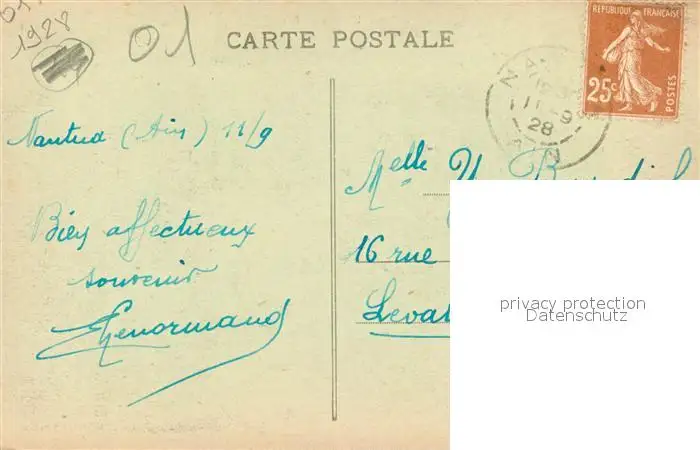 1928
01
CARTE POSTALE
REPUBLIQUE FRANÇAISE
25c
POSTES
11-9
28
AIN
Nantua (Ain) 11/9
Bien affectueux
souvenir
Melle Y.
16 rue
Leval
privacy protection
Datenschutz